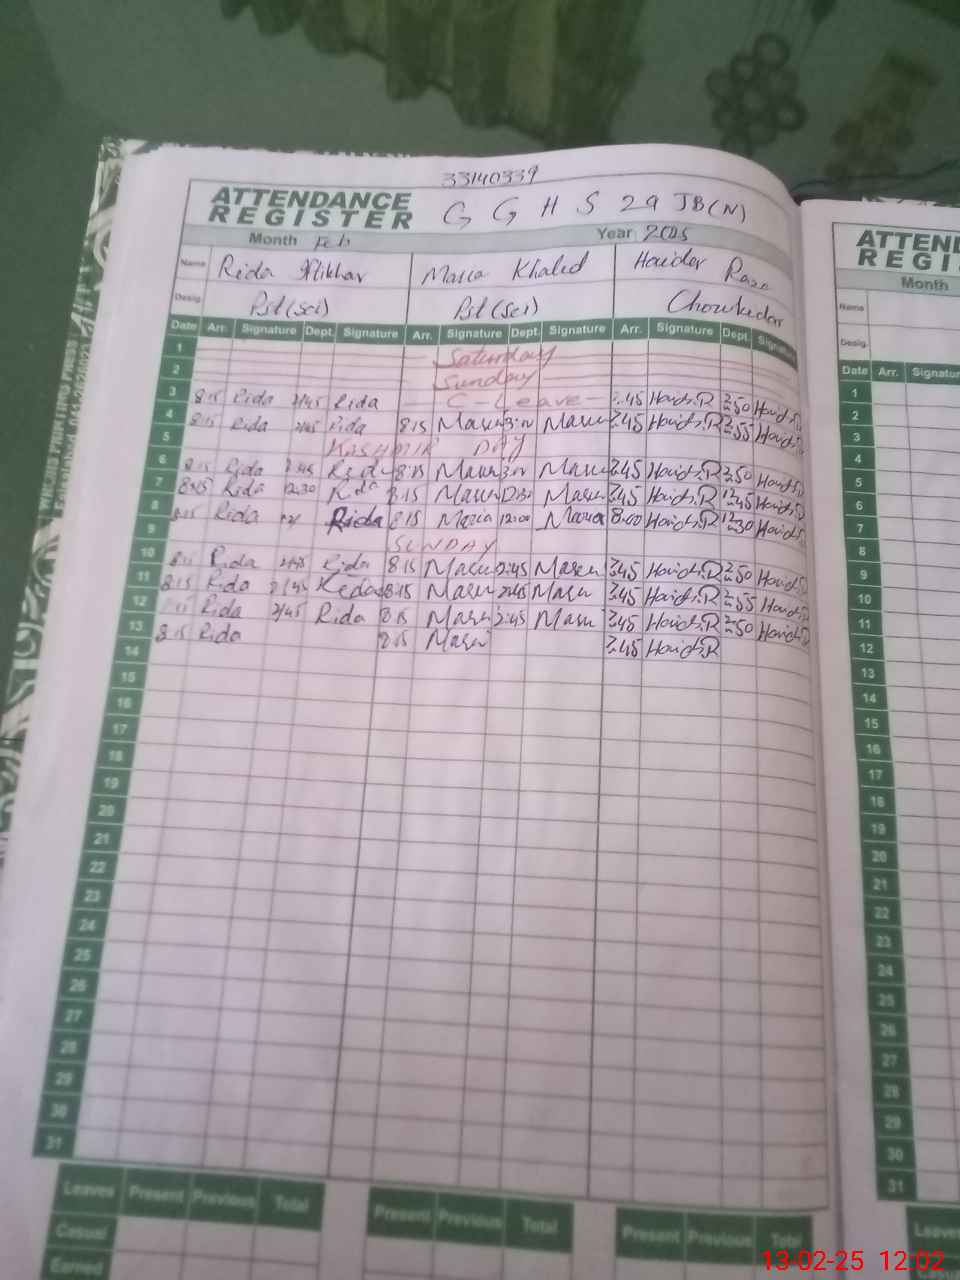 33140339
ATTENDANCE REGISTER G G H S 29 JB(N)
Month Feb Year 2025
Name Rida Iftikhar Maria Khalid Haider Raza
Desig. Pst(Sci) Pst(Sci) Chowkedar
Date Arr. Signature Dept. Signature Arr. Signature Dept. Signature Arr. Signature Dept. Signature
1 Saturday
2 Sunday
3 8:15 Rida 2:45 Rida C-Leave 7:45 Haider.R 2:50 Haider.R
4 8:15 Rida 2:45 Rida 8:15 Maria Maria 7:45 Haider.R 2:55 Haider.R
5 KASHMIR DAY
6 8:15 Rida 2:45 Rida 8:15 Maria Maria 7:45 Haider.R 2:50 Haider.R
7 8:15 Rida 12:30 Rida 8:15 Maria Maria 7:45 Haider.R 12:45 Haider.R
8 8:15 Rida 12 Rida 8:15 Maria 12:00 Maria 8:00 Haider.R 12:30 Haider.R
9 SUNDAY
10 8:15 Rida 2:45 Rida 8:15 Maria 2:45 Maria 7:45 Haider.R 2:50 Haider.R
11 8:15 Rida 2:45 Rida 8:15 Maria 2:45 Maria 7:45 Haider.R 2:55 Haider.R
12 8:15 Rida 2:45 Rida 8:15 Maria 2:45 Maria 7:45 Haider.R 2:50 Haider.R
13 8:15 Rida 8:15 Maria 7:45 Haider.R
14
15
16
17
18
19
20
21
22
23
24
25
26
27
28
29
30
31
Leaves Present Previous Total Present Previous Total Present Previous Total
Casual
Earned
ATTEN
REGI
Month
Name
Desig.
Date Arr. Signatur
1
2
3
4
5
6
7
8
9
10
11
12
13
14
15
16
17
18
19
20
21
22
23
24
25
26
27
28
29
30
31
Leave
13-02-25 12:02